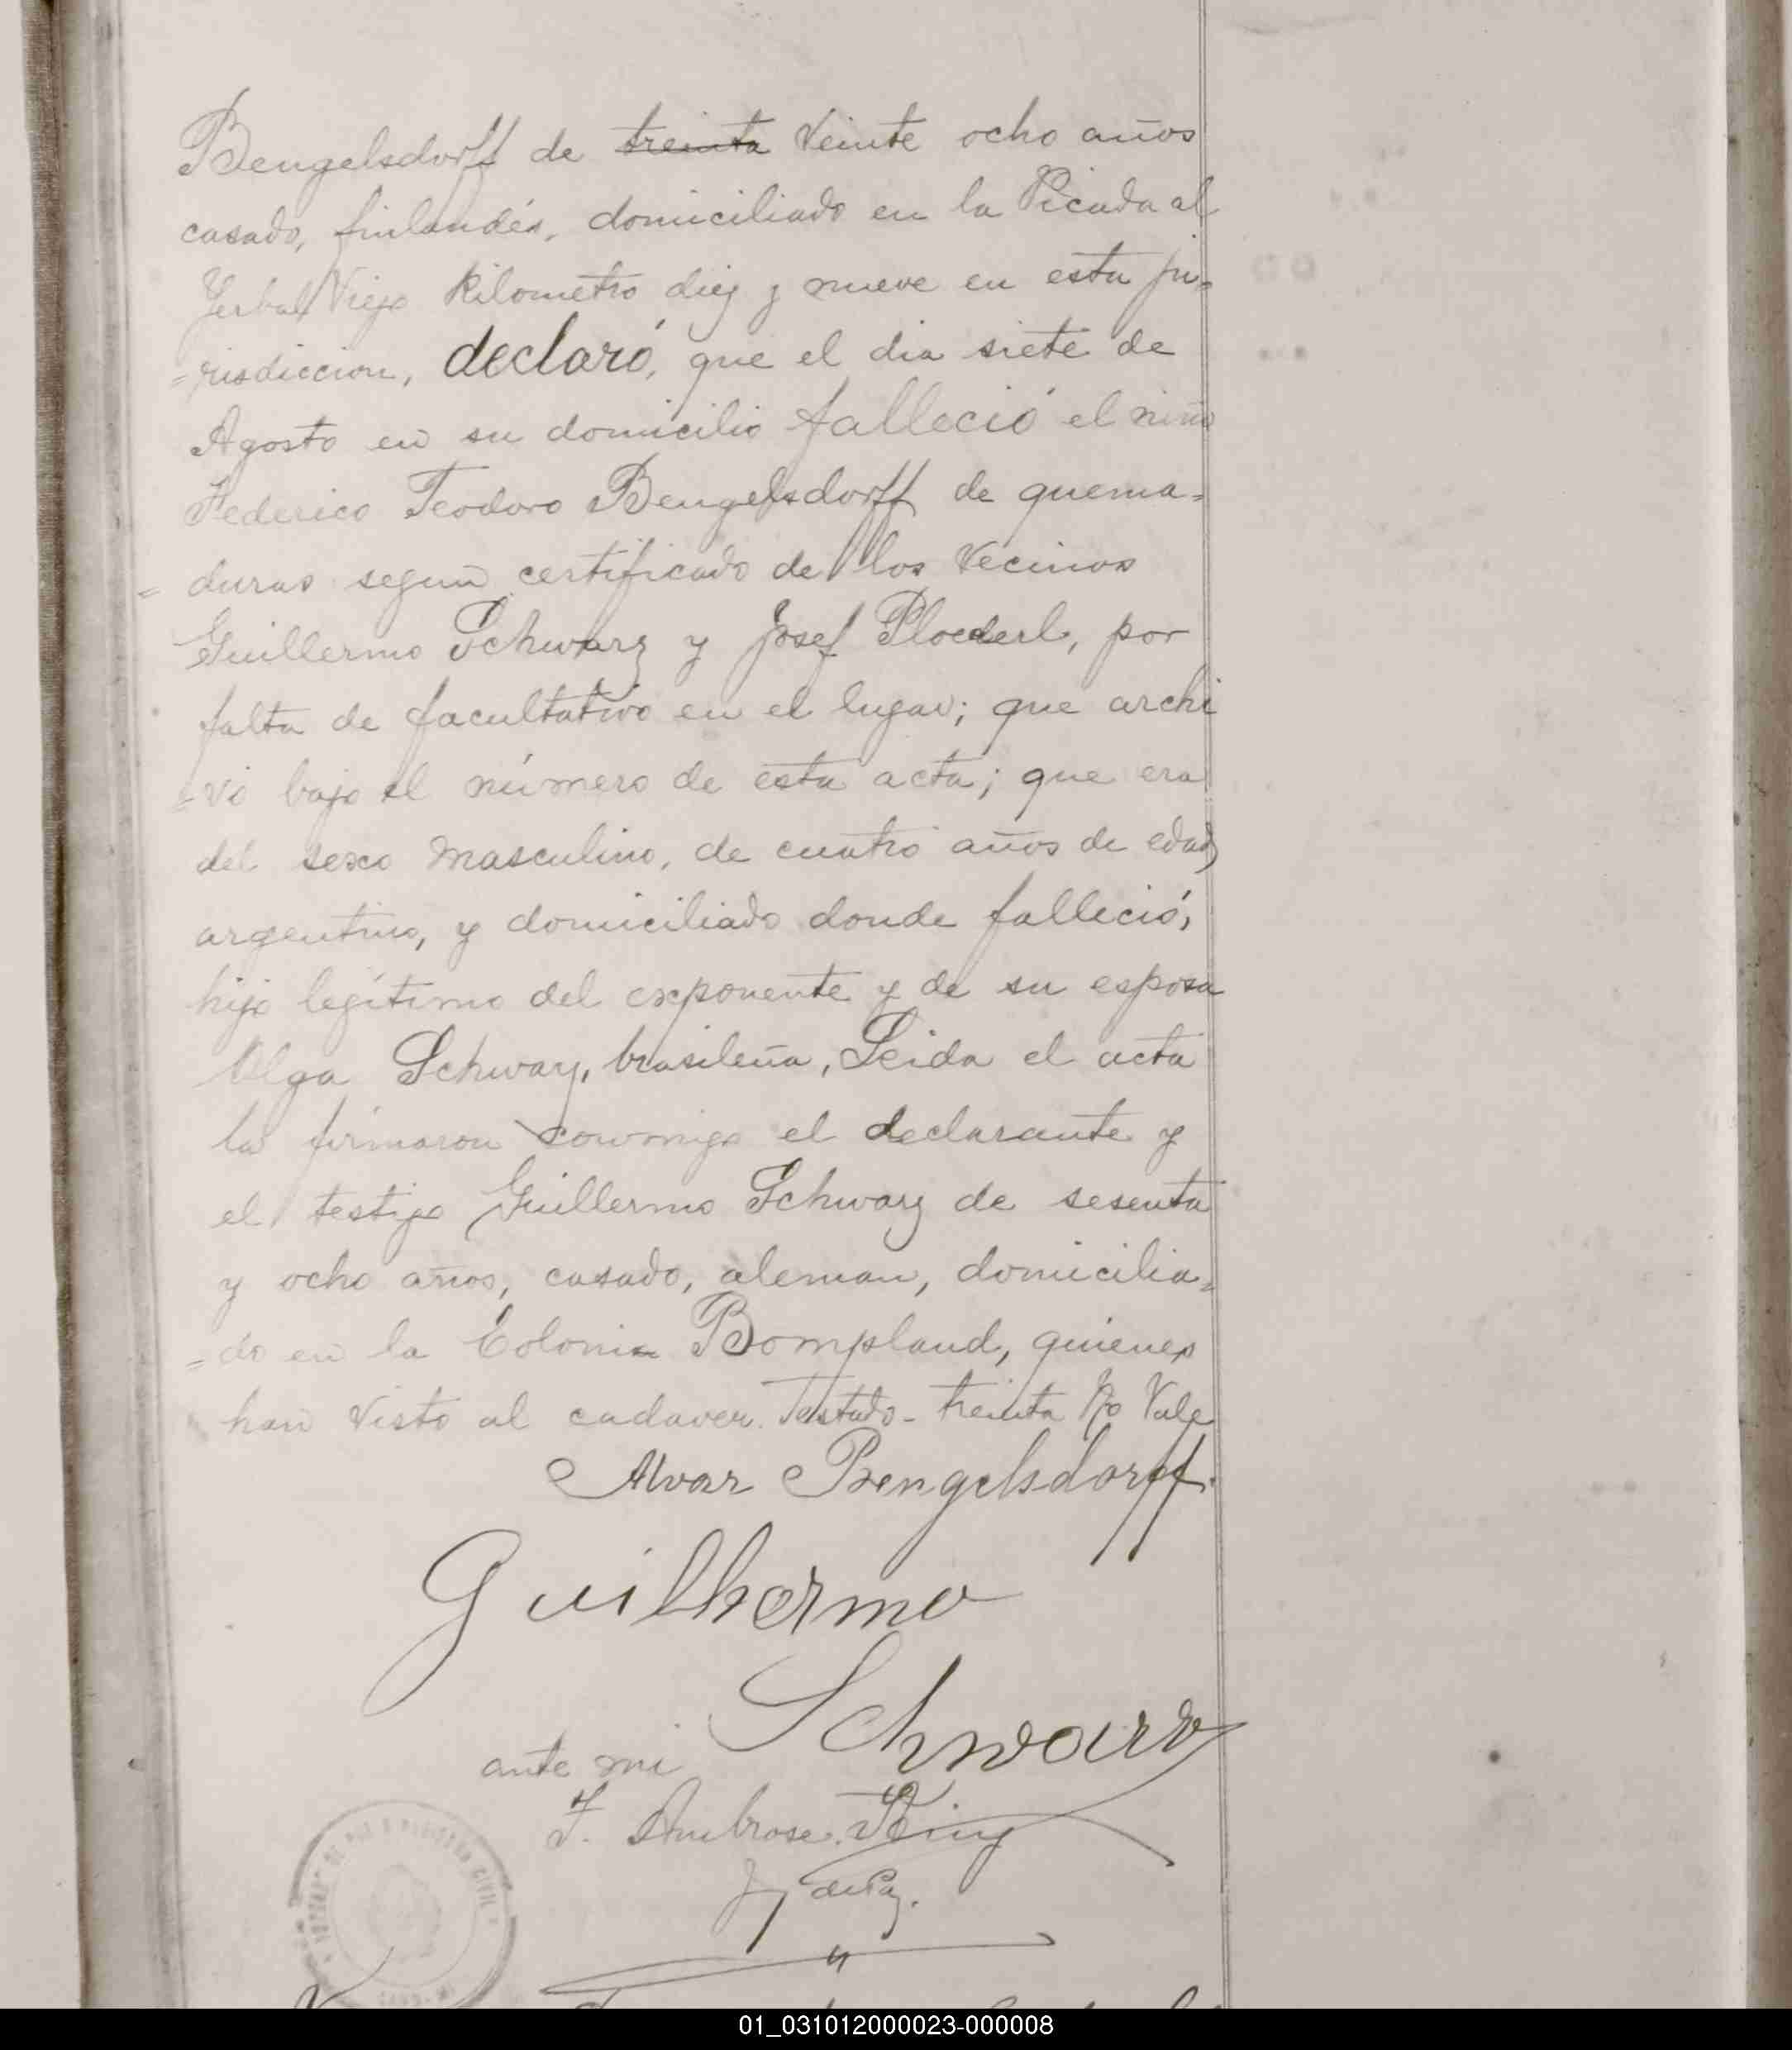 Bengelsdorff de treinta veinte ocho años
casado, finlandés, domiciliado en la Picada al
Yerbal Viejo Kilometro diez y nueve en esta ju=
=risdiccion, declaró, que el dia siete de
Agosto en su domicilio falleció el niño
Federico Teodoro Bengelsdorff de quema=
=duras segun certificado de los vecinos
Guillermo Schwarz y Josef Ploederl, por
falta de facultativo en el lugar; que archi
=vo bajo el número de esta acta; que era
del sexo masculino, de cuatro años de edad,
argentino, y domiciliado donde falleció,
hijo legítimo del exponente y de su esposa
Olga Schwarz, brasileña, Leida el acta
la firmaron conmigo el declarante y
el testigo Guillermo Schwarz de sesenta
y ocho años, casado, aleman, domicilia=
=do en la Colonia Bompland, quienes
han visto al cadaver. Testado - treinta No Vale
Alvar Bengelsdorff.
Guilhermo
Schwarz
ante mi
F. Ambrose King
J de Paz.
REGISTRO CIVIL
01_031012000023-000008